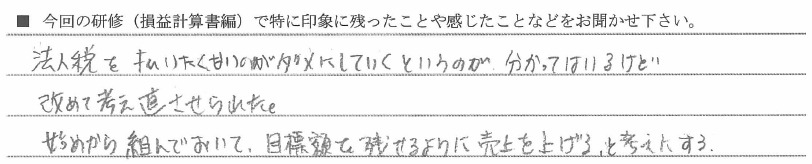 ■ 今回の研修（損益計算書編）で特に印象に残ったことや感じたことなどをお聞かせ下さい。
法人税を払いたくないのがダメにしていくというのが分かってはいるけど
改めて考え直させられた。
始めから組んでおいて、目標額を残せるように売上を上げる、と考えにする.